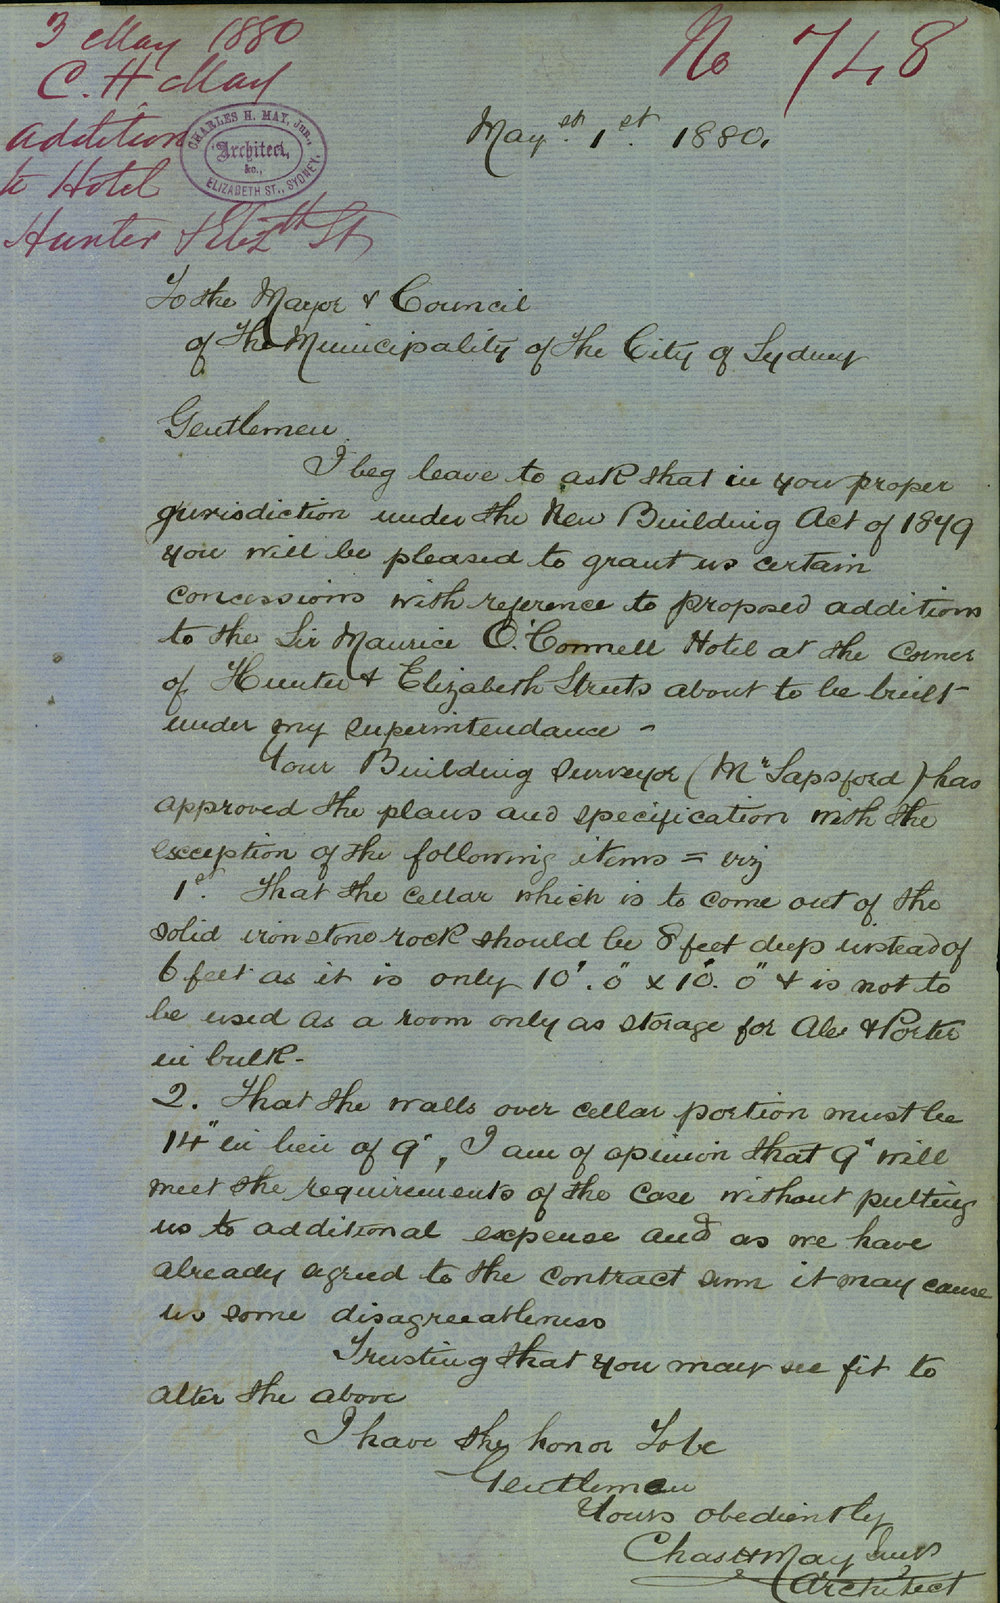 3 May 1880
No 748
C. H. May
addition
to Hotel
Hunter & Elizth St
CHARLES H. MAY, Jun.,
Architect,
&c.,
ELIZABETH ST., SYDNEY.
May st. 1st. 1880.
To the Mayor & Council
of the Municipality of the City of Sydney
Gentlemen
I beg leave to ask that in your proper
jurisdiction under the New Building Act of 1879
you will be pleased to grant us certain
concessions with reference to proposed additions
to the Sir Maurice O'Connell Hotel at the corner
of Hunter & Elizabeth Streets about to be built
under my superintendance -
Your Building Surveyor (Mr Sapsford) has
approved the plans and specification with the
exception of the following items = viz
1st. That the cellar which is to come out of the
solid ironstone rock should be 8 feet deep instead of
6 feet as it is only 10'. 0" x 10'. 0" & is not to
be used as a room only as storage for Ale & Porter
in bulk -
2. That the walls over cellar portion must be
14" in lieu of 9", I am of opinion that 9" will
meet the requirements of the case without putting
us to additional expense and as we have
already agreed to the contract sum it may cause
us some disagreeableness
Trusting that you may see fit to
alter the above
I have the honor To be
Gentlemen
Yours obediently
Chas H May Junr
Architect